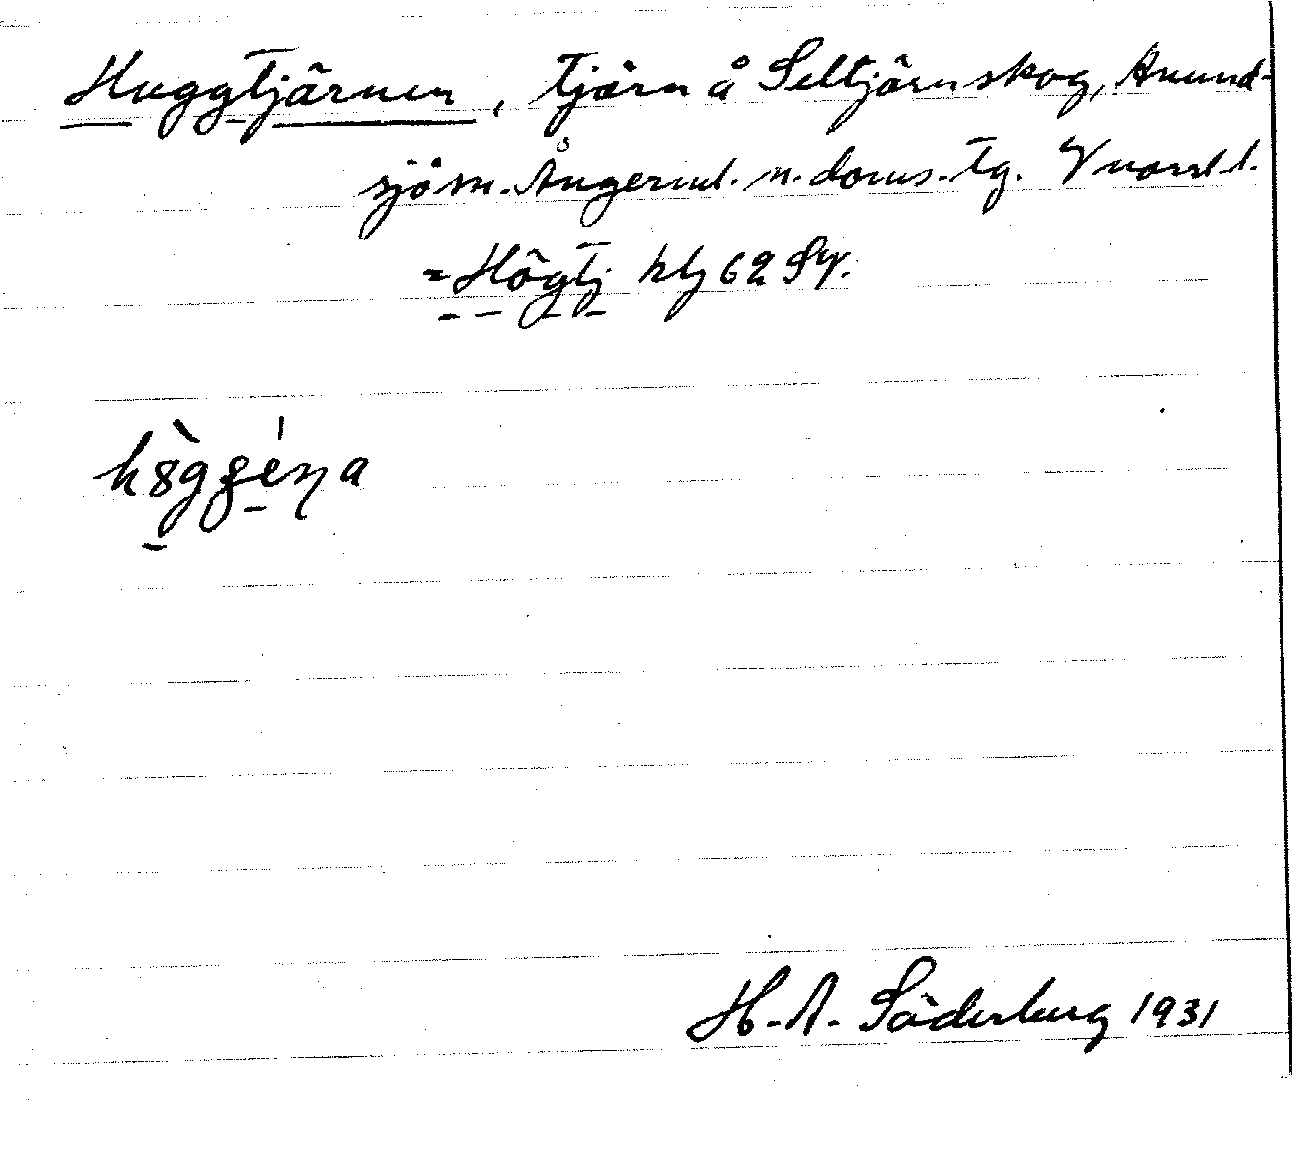 Huggtjärnen, tjärn å Seltjärnskog, Anund-
sjö sn. Ångerml. n. doms. tg. Vnorrl. l.
= Högtj hbg 62 SV.
hòggéṇa
H. A. Söderberg 1931